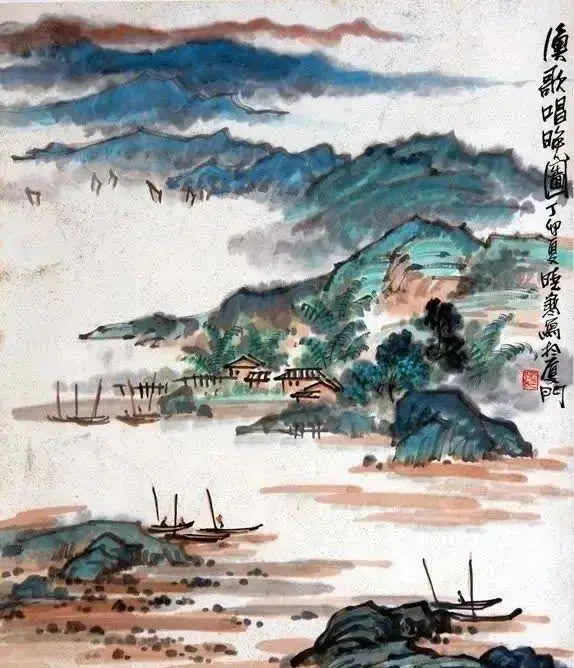 漁歌唱晚圖丁卯夏寫於廈門